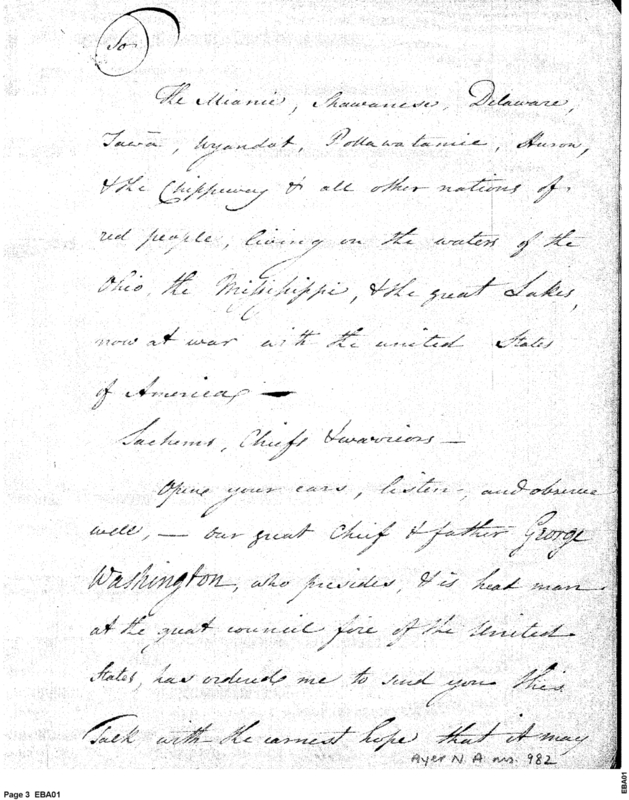 To
The Miamie, Shawanese, Delaware,
Tawa, Wyandot, Pottawatamie, Huron,
& the Chippeway & all other nations of
red people, living on the waters of the
Ohio, the Missisippi, & the great Lakes,
now at war with the united States
of America, —
Sachems, Chiefs & warriors —
Open your ears, listen, and observe
well, — our great Chief & father George
Washington, who presides, & is head man
at the great council fire of the United
States, has ordered me to send you this
Talk with the earnest hope that it may
Ayer N. A. ms. 982
Page 3 EBA01
EBA01